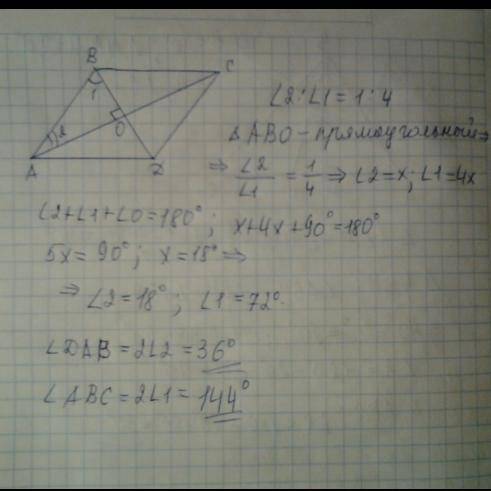 B
C
1
2
O
A
D
∠2:∠1 = 1:4
△ABO - прямоугольный ⇒
⇒ ∠2/∠1 = 1/4 ⇒ ∠2=x; ∠1=4x
∠2+∠1+∠O=180°; x+4x+90°=180°
5x = 90°; x=18° ⇒
⇒ ∠2=18°; ∠1=72°.
∠DAB = 2∠2 = 36°
∠ABC = 2∠1 = 144°